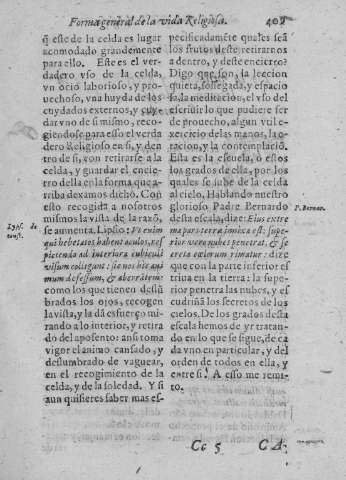 Forma general de la vida Religiosa. 409
q̃ este de la celda es lugar
acomodado grandemente
para ello. Este es el ver-
dadero vso de la celda,
vn ocio laborioso, y pro-
uechoso, vna huyda de los
cuydados externos, y cuy-
dar vno de si mismo, reco-
giendose para esso el verda
dero Religioso en si, y den
tro de si, con retirarse a la
celda, y guardar el encie-
rro della en la forma que a-
rriba dexamos dicho. Con
esto recogida a nosotros
mismos la vista de la razõ,
se aumenta. Lipsio: Vt enim
qui hebetatos habent oculos, res
piciendo ad interiora cubiculi
visum colligunt: sic nos hic ani
mum defessum, & aberrãtem:
como los que tienen deslũ
brados los ojos, recogen
la vista, y la dã esfuerço mi-
rando a lo interior, y retira
do del aposento: ansi toma
vigor el animo cansado, y
deslumbrado de vaguear,
en el recogimiento de la
celda, y de la soledad. Y si
aun quisieres saber mas es-
Lyps. de
const.
pecificadamẽte quales seã
los frutos deste retirarnos
a dentro, y deste encierro?
Digo que son, la leccion
quieta, sossegada, y espacio
sa, la meditaciõ, el vso del
escriuir lo que pudiere ser
de prouecho, algun vtil e-
xercicio de las manos, la o-
racion, y la contemplaciõ.
Esta es la escuela, ò estos
los grados de ella, por los
quales se sube de la celda
al cielo. Hablando nuestro
glorioso Padre Bernardo
desta escala, dize: Eius extre
ma pars terræ innixa est: supe-
rior vero nubes penetrat, & se
creta cælorum rimatur: dize
que con la parte inferior es
triua en la tierra: la superior
penetra las nubes, y es-
cudriñã los secretos de los
cielos. De los grados desta
escala hemos de yr tratan-
do en lo que se sigue, de ca
da vno en particular, y del
orden de todos en ella, y
entre si. A esso me remi-
to.
P. Bernar.
Cc 5 CA-